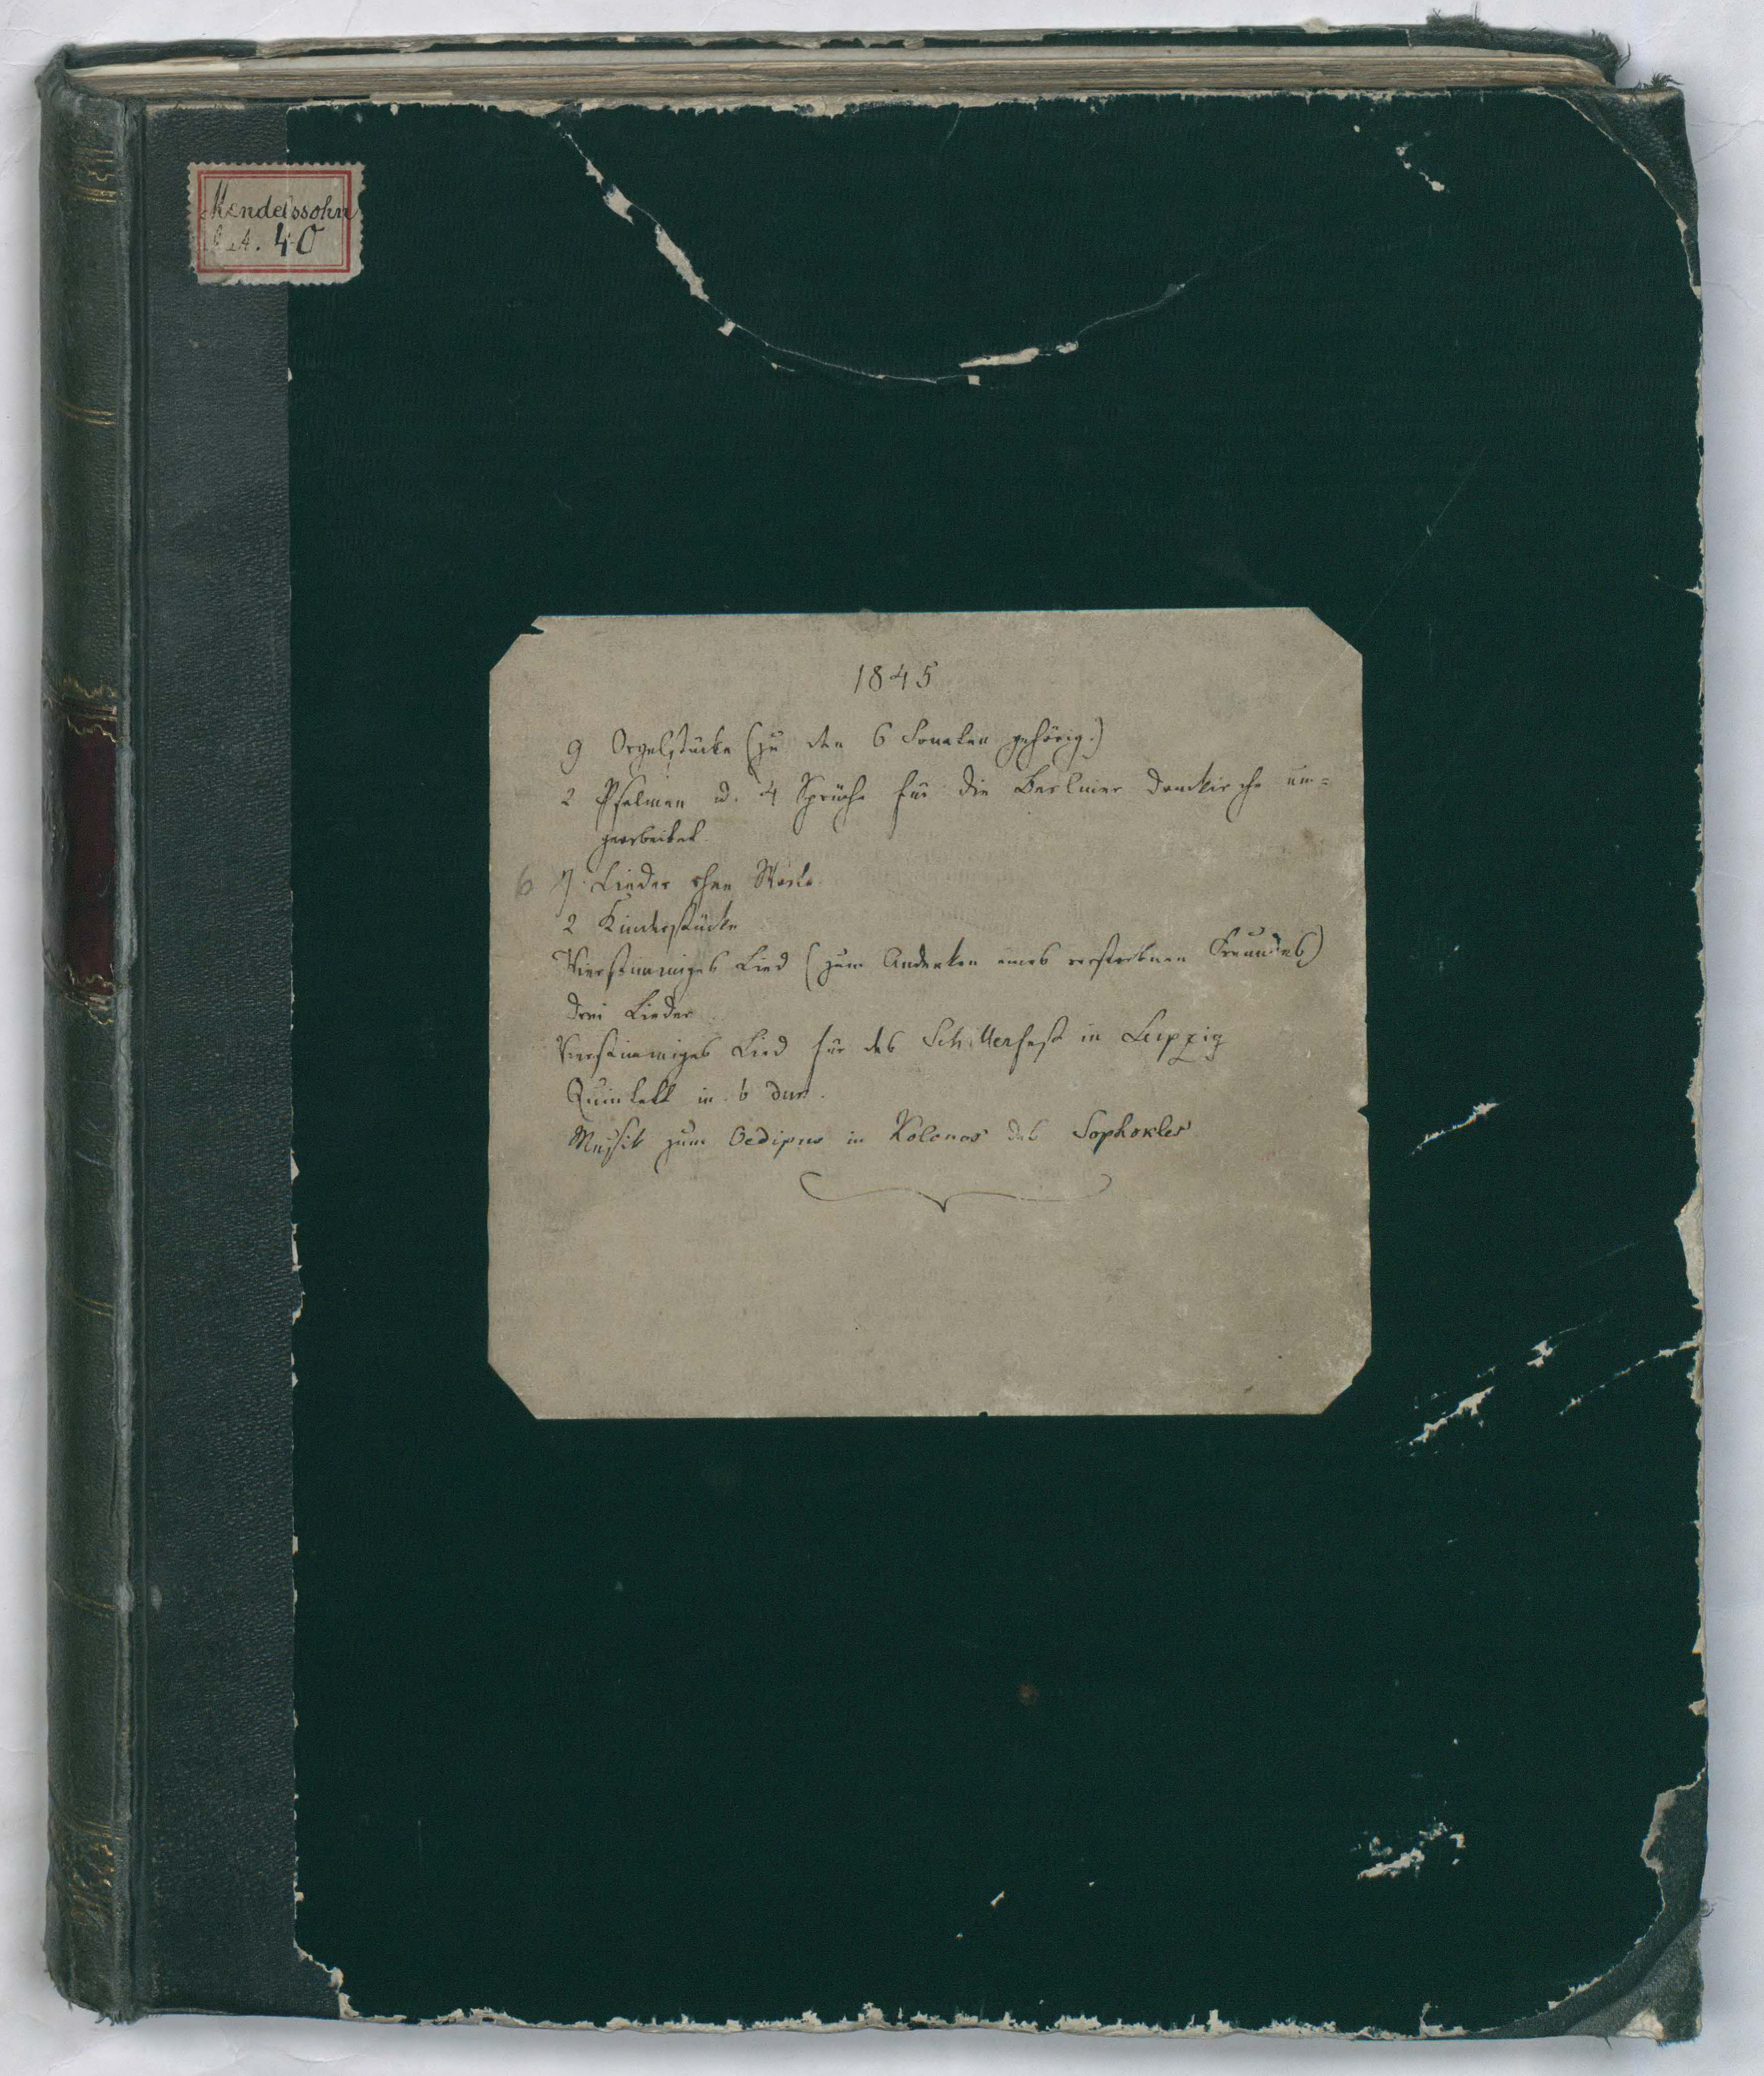 Mendelssohn
Aut. 40
1845
9 Orgelstücke (zu den 6 Sonaten gehörig.)
2 Psalmen u. 4 Sprüche für die Berliner Domkirche um=
gearbeitet.
6 7 Lieder ohne Worte.
2 Kinderstücke
Vierstimmiges Lied (zum Andenken eines verstorbnen Freundes)
Drei Lieder.
Vierstimmiges Lied für das Schillerfest in Leipzig
Quintett in b dur.
Musik zum Oedipus in Kolonos des Sophokles